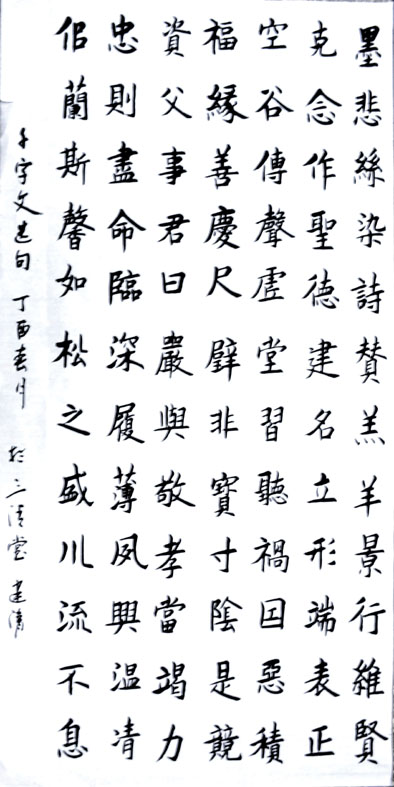 墨悲絲染詩贊羔羊景行維賢
克念作聖德建名立形端表正
空谷傳聲虛堂習聽禍因惡積
福緣善慶尺璧非寶寸陰是競
資父事君曰嚴與敬孝當竭力
忠則盡命臨深履薄夙興温凊
佀蘭斯馨如松之盛川流不息
千字文选句 丁酉春月 於三清堂 建清